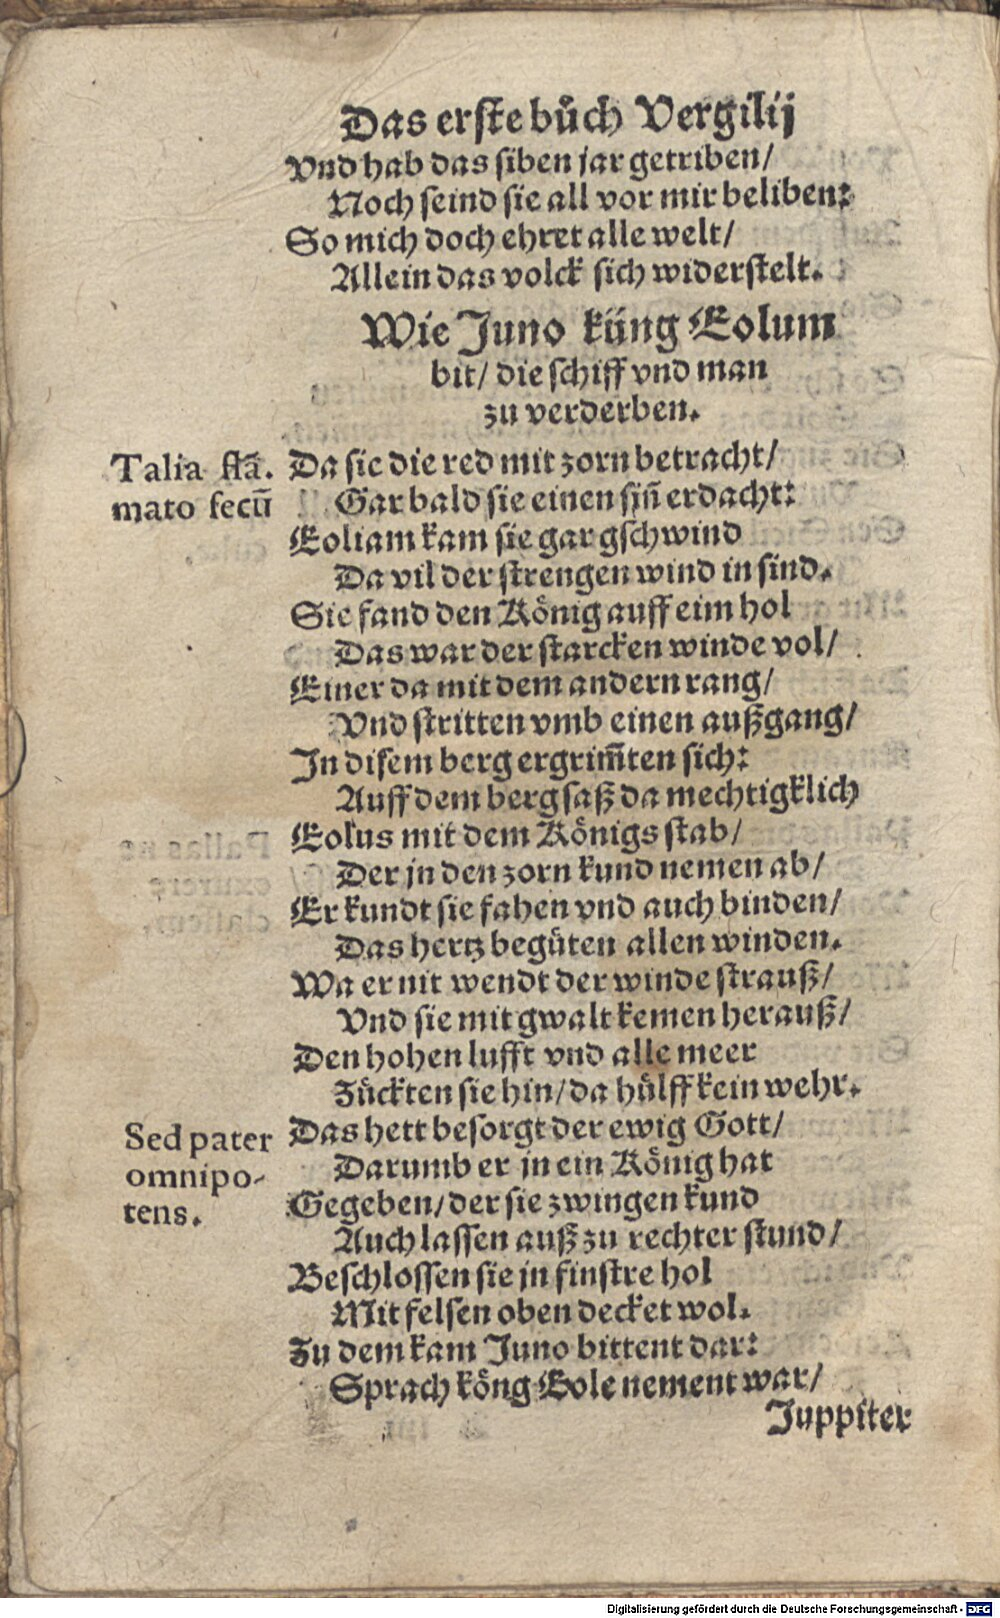 Das erste bůch Vergilij
Vnd hab das siben jar getriben/
Noch seind sie all vor mir beliben:
So mich doch ehret alle welt/
Allein das volck sich widerstelt.
Wie Juno küng Eolum
bit/ die schiff vnd man
zu verderben.
Talia flā-
mato secū
Da sie die red mit zorn betracht/
Gar bald sie einen siñ erdacht:
Eoliam kam sie gar gschwind
Da vil der strengen wind in sind.
Sie fand den König auff eim hol
Das war der starcken winde vol/
Einer da mit dem andern rang/
Vnd stritten vmb einen außgang/
In disem berg ergrim̃ten sich:
Auff dem berg saß da mechtigklich
Eolus mit dem Königs stab/
Der jn den zorn kund nemen ab/
Er kundt sie fahen vnd auch binden/
Das hertz begüten allen winden.
Wa er nit wendt der winde strauß/
Vnd sie mit gwalt kemen herauß/
Den hohen lufft vnd alle meer
Zückten sie hin/ da hülff kein wehr.
Sed pater
omnipo-
tens.
Das hett besorgt der ewig Gott/
Darumb er jn ein König hat
Gegeben/ der sie zwingen kund
Auch lassen auß zu rechter stund/
Beschlossen sie jn finstre hol
Mit felsen oben decket wol.
Zu dem kam Juno bittent dar:
Sprach köng Eole nement war/
Juppiter
Digitalisierung gefördert durch die Deutsche Forschungsgemeinschaft - DFG